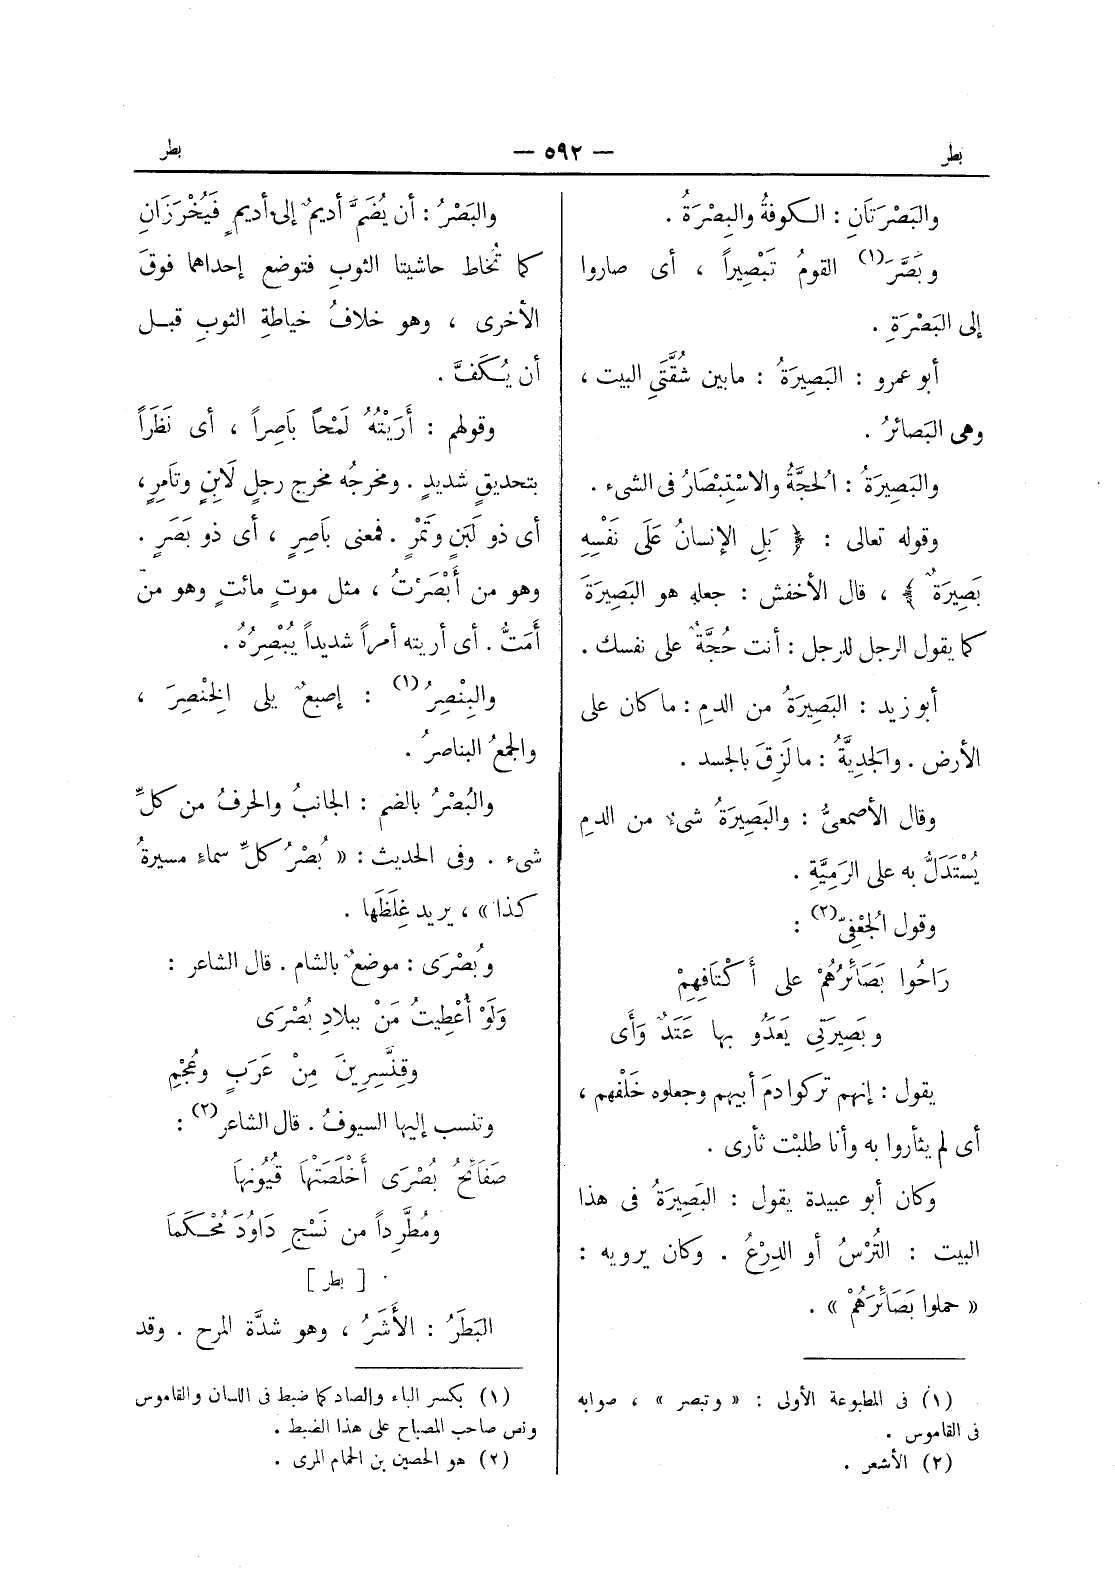 بطر — ٥٩٢ — بطر
والبَصْرَتَانِ : الكوفةُ والبِصْرَةُ .
وبَصَّرَ(١) القومُ تَبْصِيراً ، أى صاروا
إلى البَصْرَةِ .
أبو عمرو : البَصِيرَةُ : مابين شُقَّتَىِ البيت ،
وهى البَصائرُ .
والبَصِيرَةُ : الحجَّةُ والاسْتِبْصَارُ فى الشىء .
وقوله تعالى : ﴿ بَلِ الإنسانُ عَلَى نَفْسِهِ
بَصِيرَةٌ ﴾ ، قال الأخفش : جعله هو البَصِيرَةَ
كما يقول الرجل للرجل : أنت حُجَّةٌ على نفسك .
أبو زيد : البَصِيرَةُ من الدمِ : ما كان على
الأرض . والجَدِيَّةُ : ما لَزِقَ بالجسد .
وقال الأصمعىُّ : والبَصِيرَةُ شىءٌ من الدمِ
يُسْتَدَلُّ به على الرَمِيَّةِ .
وقول الجُعْفِىّ(٢) :
رَاحُوا بَصَائرُهُمْ على أَكْتَافِهِمْ
وبَصِيرَتِى يَعْدُو بها عَتَدٌ وَأَى
يقول : إنهم تركوا دمَ أبيهم وجعلوه خَلْفهم ،
أى لم يثأروا به وأنا طلبْت ثأرى .
وكان أبو عبيدة يقول : البَصِيرَةُ فى هذا
البيت : التُرْسُ أو الدِرْعُ . وكان يرويه :
« حملوا بَصَائرَهُمْ » .
(١) فى المطبوعة الأولى : « وتبصر » ، صوابه
فى القاموس .
(٢) الأسْعر .
والبَصْرُ : أن يُضَمَّ أديمٌ إلى أديمٍ فَيُخْرَزَانِ
كما تُخاط حاشيتا الثوبِ فتوضع إحداهما فوقَ
الأخرى ، وهو خلافُ خياطةِ الثوبِ قبل
أن يُكَفَّ .
وقولهم : أَرَيْتُهُ لَمْحاً بَاصِراً ، أى نَظَراً
بتحديقٍ شديدٍ . ومخرجُه مخرج رجلٍ لَابِنٍ وتَامِرٍ ،
أى ذو لَبَنٍ وتَمْرٍ . فمعنى بَاصِرٍ ، أى ذو بَصَرٍ .
وهو من أَبْصَرْتُ ، مثل موتٍ مائتٍ وهو من
أَمَتُّ . أى أريته أمراً شديداً يُبْصِرُهُ .
والبِنْصِرُ(١) : إصبعٌ يلى الخِنْصِرَ ،
والجمعُ البناصرُ .
والبُصْرُ بالضم : الجانبُ والحرفُ من كلِّ
شىء . وفى الحديث : « بُصْرُ كلِّ سماءٍ مسيرةُ
كذا » ، يريد غِلَظَها .
وبُصْرَى : موضعٌ بالشام . قال الشاعر :
وَلَوْ أُعْطِيتُ مَنْ ببلادِ بُصْرَى
وقِنَّسِرِينَ مِنْ عَرَبٍ وعُجْمِ
وتنسب إليها السيوفُ . قال الشاعر(٢) :
صَفَائحُ بُصْرَى أَخْلَصَتْهَا قُيُونُها
ومُطَّرِداً من نَسْجِ دَاوُدَ مُحْكَمَا
[ بطر ]
البَطَرُ : الأَشَرُ ، وهو شدَّة المرح . وقد
(١) بكسر الباء والصاد كما ضبط فى اللسان والقاموس
ونص صاحب المصباح على هذا الضبط .
(٢) هو الحصين بن الحمام المرى .